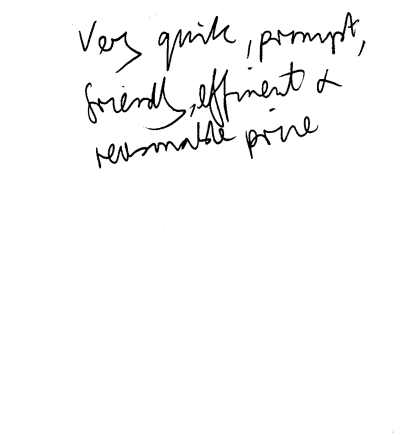 Very quick, prompt,
friendly, efficient &
reasonable price